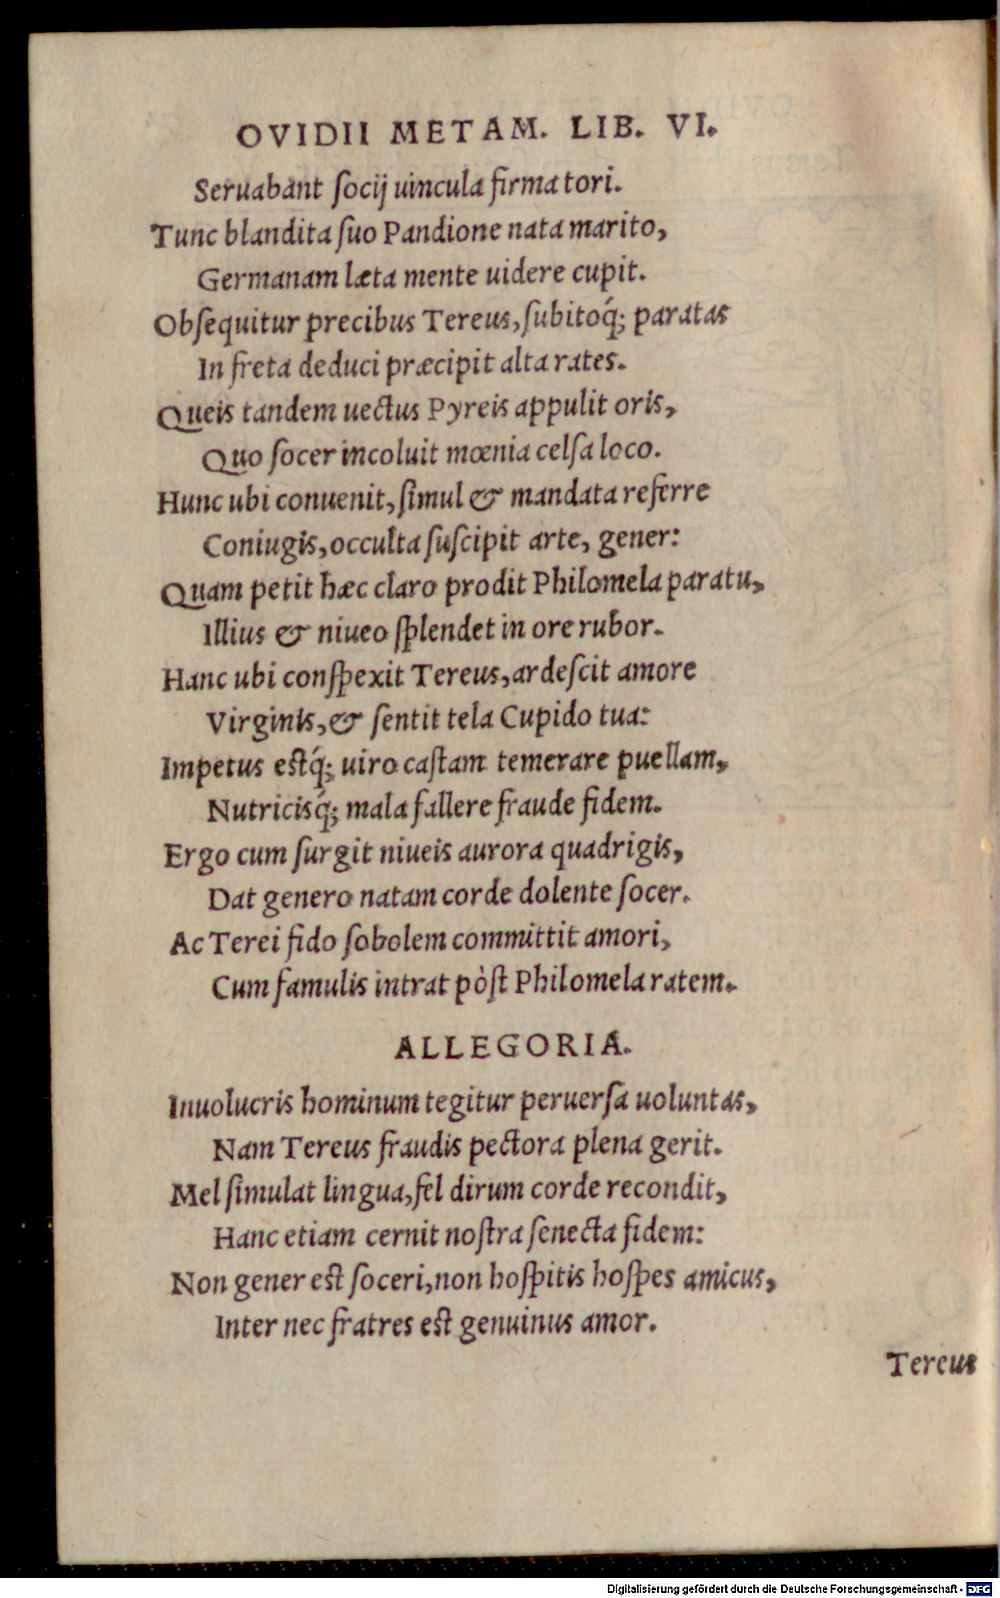 OVIDII METAM. LIB. VI.
Seruabant ſocij uincula firma tori.
Tunc blandita ſuo Pandione nata marito,
Germanam læta mente uidere cupit.
Obſequitur precibus Tereus, ſubitoq́; paratas
In freta deduci præcipit alta rates.
Queis tandem uectus Pyreis appulit oris,
Quo ſocer incoluit mœnia celſa loco.
Hunc ubi conuenit, ſimul & mandata referre
Coniugis, occulta ſuſcipit arte, gener:
Quam petit hæc claro prodit Philomela paratu,
Illius & niueo ſplendet in ore rubor.
Hanc ubi conſpexit Tereus, ardeſcit amore
Virginis, & ſentit tela Cupido tua:
Impetus eſtq́; uiro caſtam temerare puellam,
Nutricisq́; mala fallere fraude fidem.
Ergo cum ſurgit niueis aurora quadrigis,
Dat genero natam corde dolente ſocer.
Ac Terei fido ſobolem committit amori,
Cum famulis intrat pòſt Philomela ratem.
ALLEGORIA.
Inuolucris hominum tegitur peruerſa uoluntas,
Nam Tereus fraudis pectora plena gerit.
Mel ſimulat lingua, fel dirum corde recondit,
Hanc etiam cernit noſtra ſenecta fidem:
Non gener eſt ſoceri, non hoſpitis hoſpes amicus,
Inter nec fratres eſt genuinus amor.
Tereus
Digitalisierung gefördert durch die Deutsche Forschungsgemeinschaft - DFG